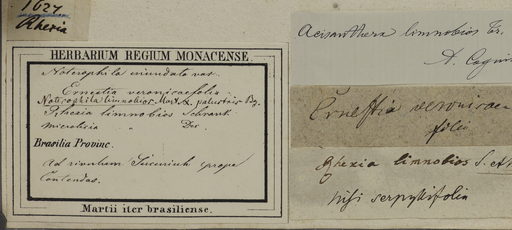 1627
Rhexia
HERBARIUM REGIUM MONACENSE.
Noterophila inundata var.
Ernestia veronicaefolia
Noterophila limnobios Mart. palustris
Rhexia limnobios Schrank
microlicia " Dec.
Brasilia Provinc.
Ad rivulum Sucuriuh prope
Contendas.
Martii iter brasiliense.
Acisanthera limnobios Tr.
A. Cogn
Ernestia veronicae-
folia
Rhexia limnobios S. et M
nisi serpyllifolia